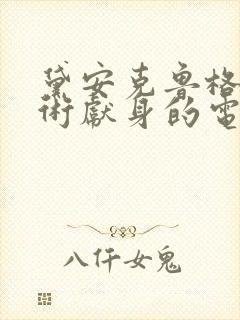 黛安克鲁格
術獻身的電
八仟女鬼